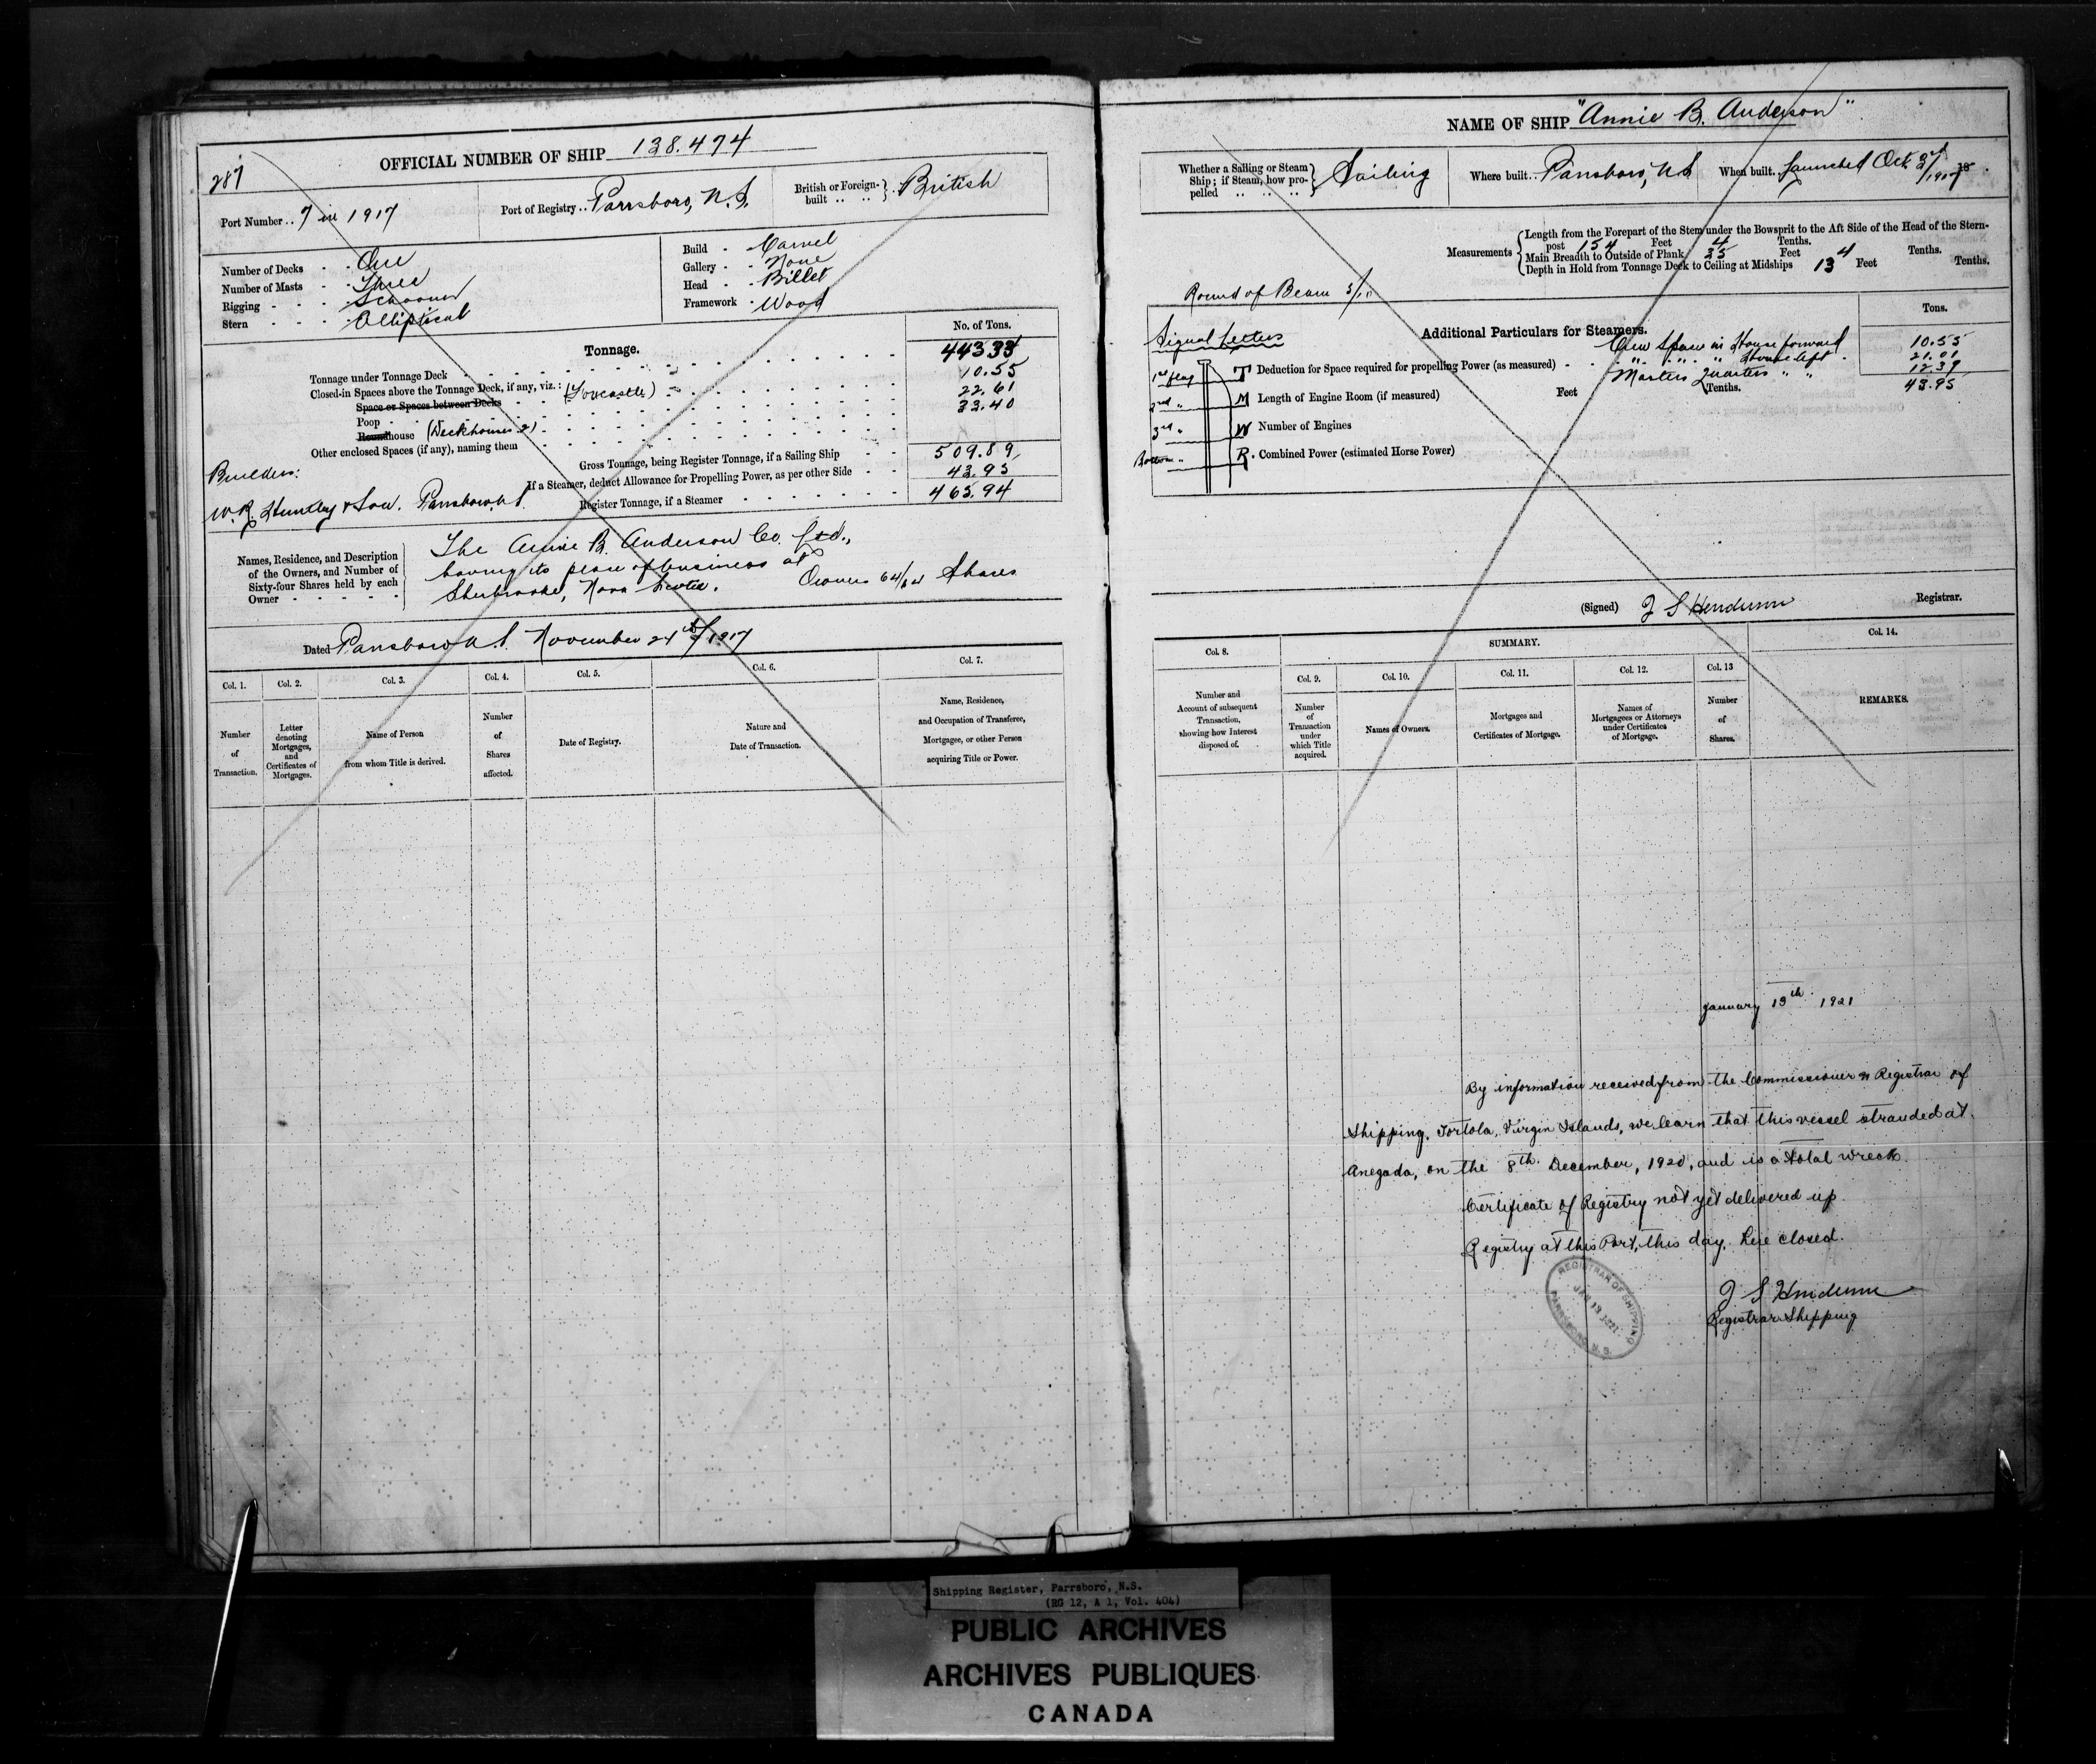 OFFICIAL NUMBER OF SHIP 138.474
287
Port Number .. 7 in 1917
Port of Registry .. Parrsboro, N.S.
British or Foreign-built .. .. British
Number of Decks - - One
Number of Masts - Three
Rigging - - - Schooner
Stern - - - Elliptical
Build - Carvel
Gallery - - None
Head - - Billet
Framework - Wood
Tonnage.
No. of Tons.
Tonnage under Tonnage Deck 443.33
Closed-in Spaces above the Tonnage Deck, if any, viz.: (Forecastle) 10.55
Space or Spaces between Decks 22.61
Poop 33.40
Roundhouse (Deckhouses 2)
Other enclosed Spaces (if any), naming them
Gross Tonnage, being Register Tonnage, if a Sailing Ship 509.89
If a Steamer, deduct Allowance for Propelling Power, as per other Side 43.95
Register Tonnage, if a Steamer 465.94
Builders:
W.R. Huntley & Son. Parrsboro, N.S.
Names, Residence, and Description
of the Owners, and Number of
Sixty-four Shares held by each
Owner - - - - -
The Annie B. Anderson Co. Ltd.,
having its place of business at
Sherbrooke, Nova Scotia. Owners 64/64 Shares
Dated Parrsboro N.S. November 24th 1917
Col. 1.
Number
of
Transaction.
Col. 2.
Letter
denoting
Mortgages,
and
Certificates of
Mortgages.
Col. 3.
Name of Person
from whom Title is derived.
Col. 4.
Number
of
Shares
affected.
Col. 5.
Date of Registry.
Col. 6.
Nature and
Date of Transaction.
Col. 7.
Name, Residence,
and Occupation of Transferee,
Mortgagee, or other Person
acquiring Title or Power.
NAME OF SHIP "Annie B. Anderson"
Whether a Sailing or Steam
Ship; if Steam, how pro-
pelled .. .. .. Sailing
Where built.. Parrsboro, N.S
When built. Launched Oct. 1917 18 .
Measurements
Length from the Forepart of the Stem under the Bowsprit to the Aft Side of the Head of the Stern-
post 154 Feet 4 Tenths.
Main Breadth to Outside of Plank 35 Feet Tenths.
Depth in Hold from Tonnage Deck to Ceiling at Midships 13 Feet 4 Tenths.
Round of Beam 5/10
Tons.
Signal Letters
Additional Particulars for Steamers.
Crew Space in House forward 10.55
" " " House aft 21.01
Masters Quarters " " 12.39
43.95
1st flag T
2nd " M
3rd " W
Bottom " R.
Deduction for Space required for propelling Power (as measured) - -
Length of Engine Room (if measured) Feet Tenths.
Number of Engines
Combined Power (estimated Horse Power)
(Signed) J S Henderson Registrar.
Col. 8.
Number and
Account of subsequent
Transaction,
showing how Interest
disposed of.
SUMMARY.
Col. 9.
Number
of
Transaction
under
which Title
acquired.
Col. 10.
Names of Owners.
Col. 11.
Mortgages and
Certificates of Mortgage.
Col. 12.
Names of
Mortgagees or Attorneys
under Certificates
of Mortgage.
Col. 13
Number
of
Shares.
Col. 14.
REMARKS.
January 13th 1921
By information received from the Commissioner & Registrar of
Shipping, Tortola, Virgin Islands, we learn that this vessel stranded at
Anegada, on the 8th December, 1920, and is a total wreck.
Certificate of Registry not yet delivered up.
Registry at this Port, this day, here closed.
J S Henderson
Registrar Shipping
REGISTRAR OF SHIPPING
JAN 13 1921
PARRSBORO N. S.
Shipping Register, Parrsboro, N.S.
(RG 12, A 1, Vol. 404)
PUBLIC ARCHIVES
ARCHIVES PUBLIQUES
CANADA